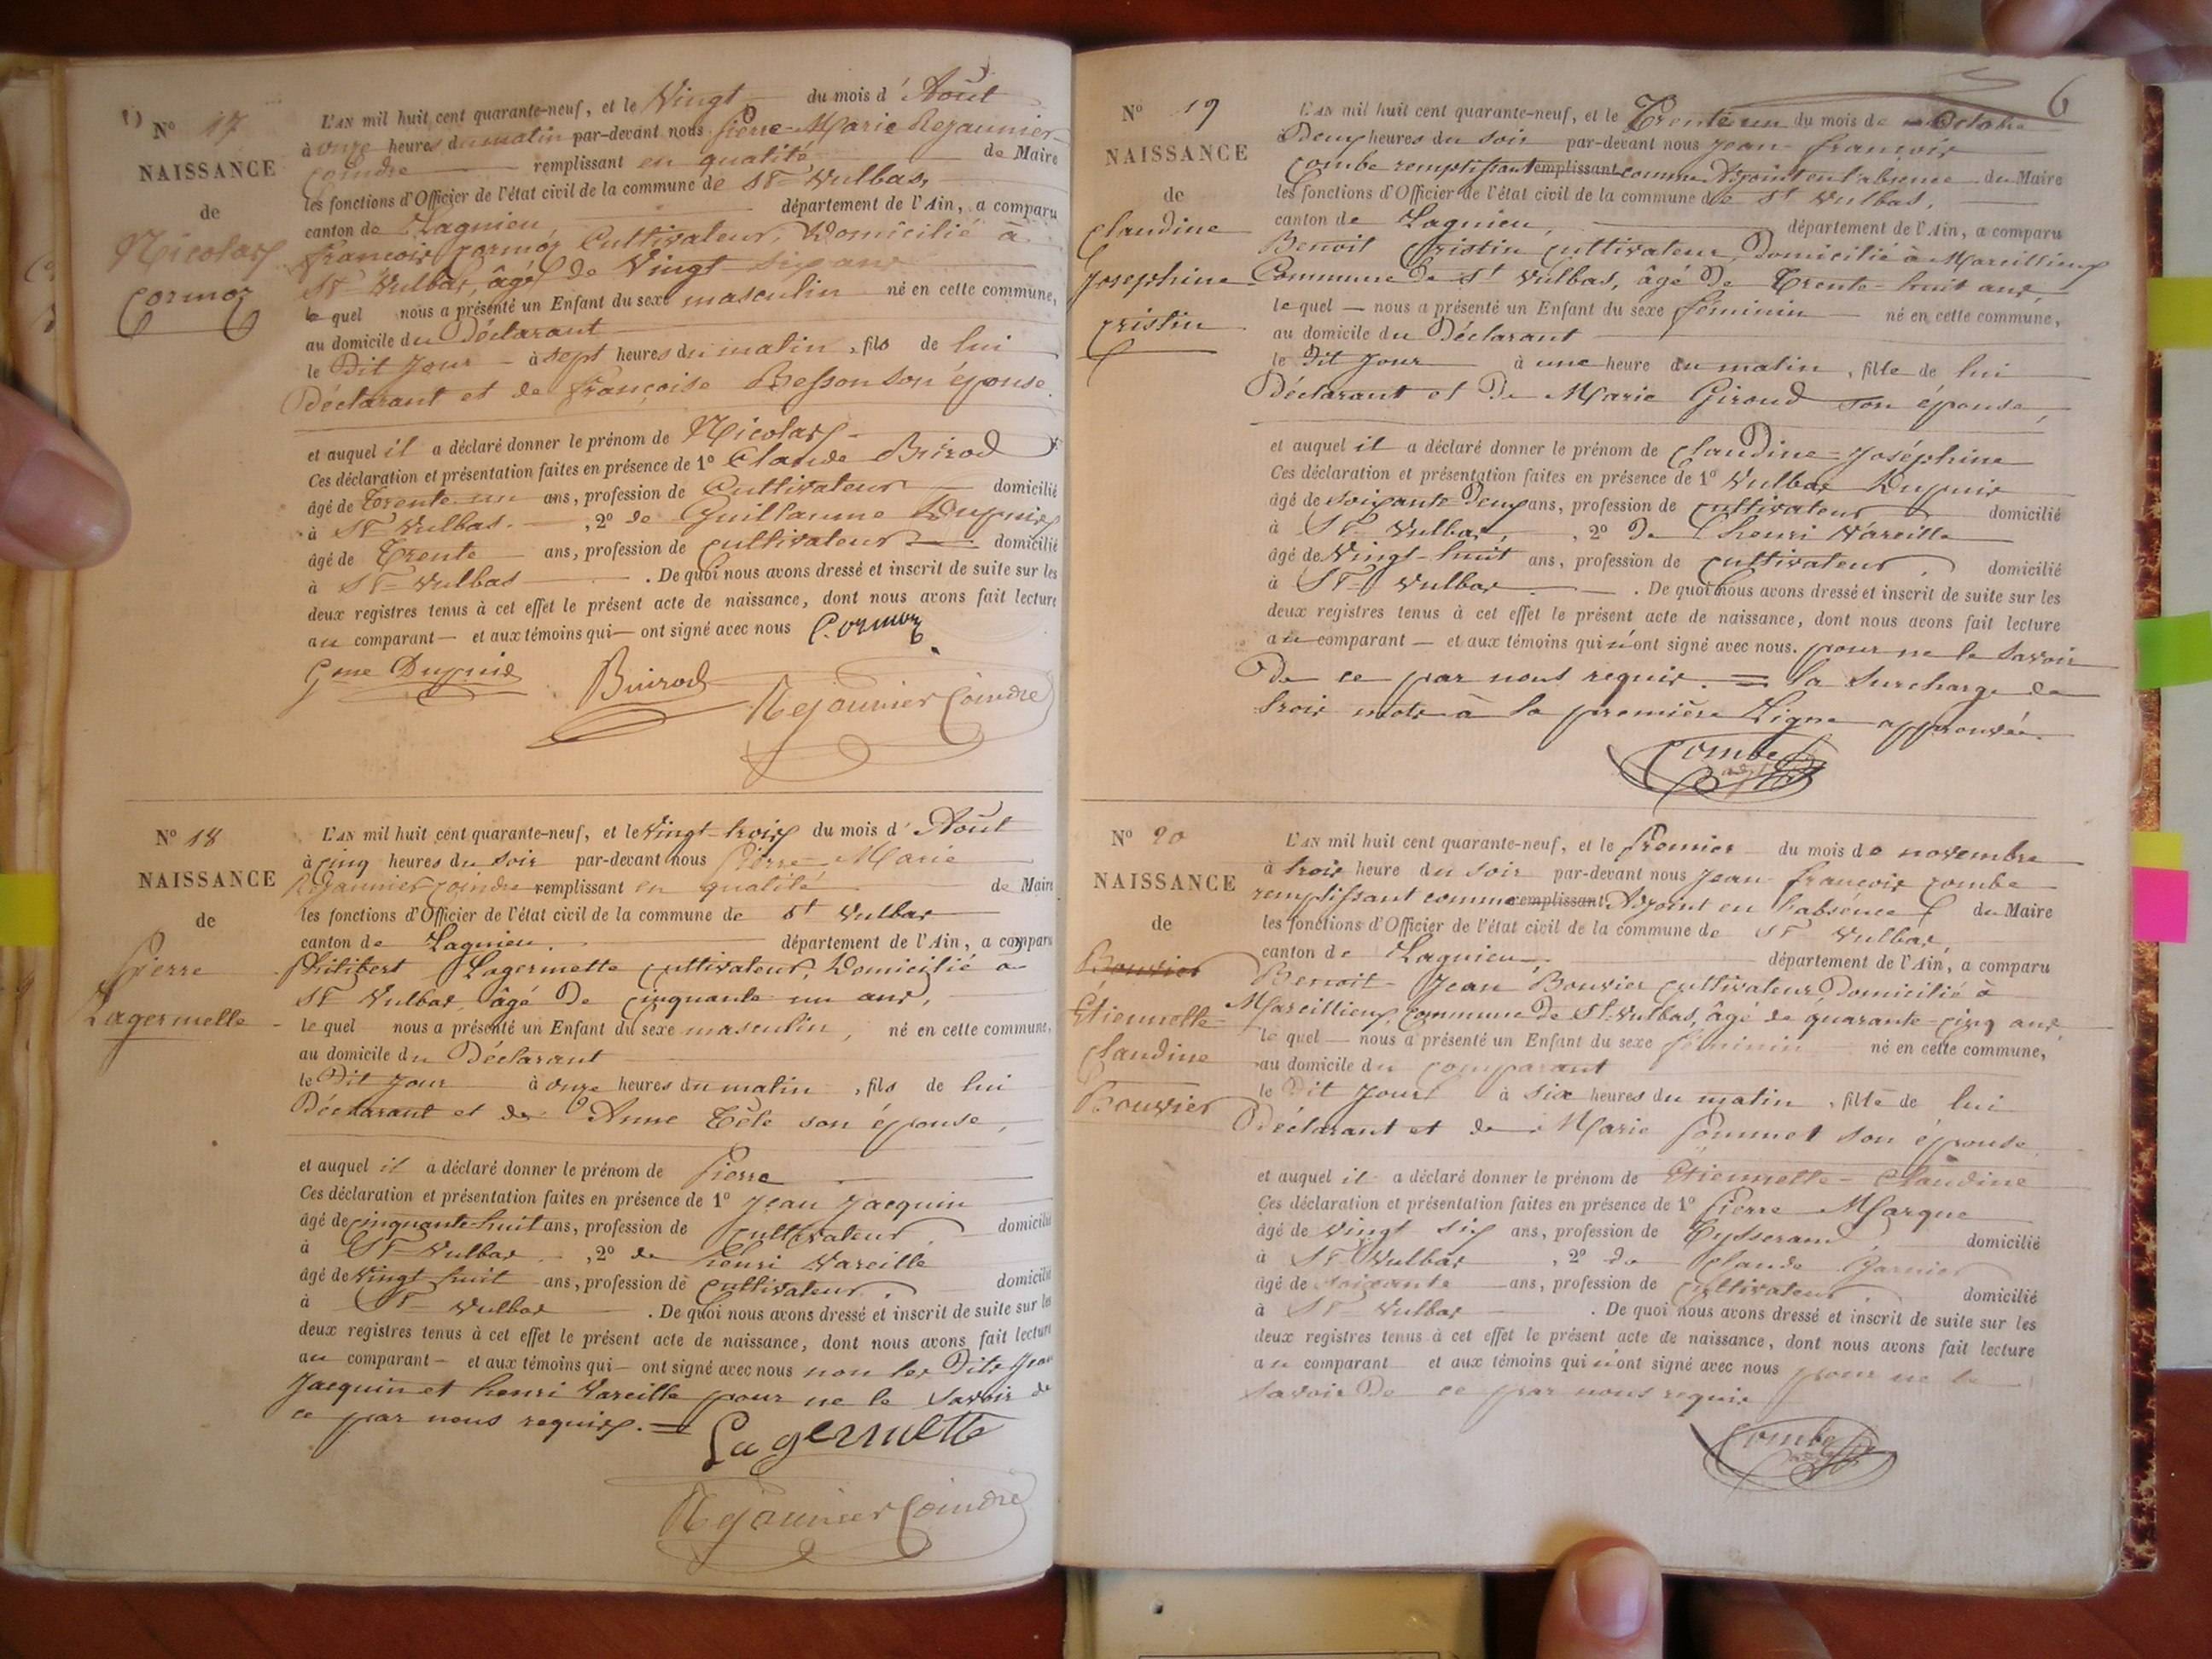 N° 17
NAISSANCE
de
Nicolas
Cormoz
L'AN mil huit cent quarante-neuf, et le Vingt du mois d'Août
à onze heures du matin par-devant nous Pierre-Marie Rejaunier
Coindre remplissant en qualité de Maire
les fonctions d'Officier de l'état civil de la commune de St Vulbas,
canton de Lagnieu, département de l'Ain, a comparu
François Cormoz Cultivateur, Domicilié à
St Vulbas, âgé de Vingt six ans
le quel nous a présenté un Enfant du sexe masculin né en cette commune,
au domicile du Déclarant
le Dit Jour à sept heures du matin, fils de lui
Déclarant et de Françoise Besson son épouse
et auquel il a déclaré donner le prénom de Nicolas
Ces déclaration et présentation faites en présence de 1° Claude Brirod
âgé de Trente un ans, profession de Cultivateur domicilié
à St Vulbas. , 2° de Guillaume Dupuis
âgé de Trente ans, profession de cultivateur domicilié
à St Vulbas . De quoi nous avons dressé et inscrit de suite sur les
deux registres tenus à cet effet le présent acte de naissance, dont nous avons fait lecture
au comparant — et aux témoins qui — ont signé avec nous Cormoz
Gme Dupuis Buirod Rejaunier Coindre
N° 18
NAISSANCE
de
Pierre
Lagermette
L'AN mil huit cent quarante-neuf, et le Vingt-trois du mois d'Août
à cinq heures du soir par-devant nous Pierre-Marie
Rejaunier Coindre remplissant en qualité de Maire
les fonctions d'Officier de l'état civil de la commune de St Vulbas
canton de Lagnieu. département de l'Ain, a comparu
Philibert Lagermette cultivateur, Domicilié à
St Vulbas, âgé de cinquante un ans,
le quel nous a présenté un Enfant du sexe masculin, né en cette commune,
au domicile du Déclarant
le Dit Jour à onze heures du matin, fils de lui
Déclarant et de Anne Tête son épouse,
et auquel il a déclaré donner le prénom de Pierre
Ces déclaration et présentation faites en présence de 1° Jean Jacquin
âgé de cinquante-huit ans, profession de cultivateur, domicilié
à St Vulbas , 2° de henri Vareille
âgé de Vingt-huit ans, profession de cultivateur, domicilié
à St Vulbas . De quoi nous avons dressé et inscrit de suite sur les
deux registres tenus à cet effet le présent acte de naissance, dont nous avons fait lecture
au comparant — et aux témoins qui — ont signé avec nous non les Dits Jean
Jacquin et henri Vareille pour ne le savoir de
ce par nous requis. = Lagermette
Rejaunier Coindre
6
N° 19
NAISSANCE
de
Claudine
Josephine
Cristin
L'AN mil huit cent quarante-neuf, et le Trente un du mois de Octobre
à Deux heures du soir par-devant nous Jean-François
Combe remplissant remplissant comme Adjoint en l'absence du Maire
les fonctions d'Officier de l'état civil de la commune de St Vulbas,
canton de Lagnieu, département de l'Ain, a comparu
Benoit Cristin cultivateur Domicilié à Marcillieux
Commune de St Vulbas, âgé de Trente-huit ans,
le quel — nous a présenté un Enfant du sexe féminin né en cette commune,
au domicile du Déclarant
le Dit Jour à une heure du matin, fille de lui
Déclarant et De Marie Giroud son épouse,
et auquel il a déclaré donner le prénom de Claudine-Joséphine
Ces déclaration et présentation faites en présence de 1° Vulbas Dupuis
âgé de soixante Deux ans, profession de cultivateur domicilié
à St Vulbas, , 2° De henri Vareille
âgé de Vingt-huit ans, profession de cultivateur, domicilié
à St Vulbas . De quoi nous avons dressé et inscrit de suite sur les
deux registres tenus à cet effet le présent acte de naissance, dont nous avons fait lecture
au comparant — et aux témoins qui n'ont signé avec nous. pour ne le savoir
De ce par nous requis. = la surcharge de
trois mots à la première Ligne approuvée.
Combe
N° 20
NAISSANCE
de
Bouvier
Etiennette
Claudine
Bouvier
L'AN mil huit cent quarante-neuf, et le Premier du mois de novembre
à trois heure du soir par-devant nous Jean-François Combe
remplissant comme remplissant Adjoint en l'absence du Maire
les fonctions d'Officier de l'état civil de la commune de St Vulbas,
canton de Lagnieu, département de l'Ain, a comparu
Benoit-Jean Bouvier cultivateur Domicilié à
Marcillieux, Commune de St Vulbas, âgé de quarante-cinq ans
le quel — nous a présenté un Enfant du sexe féminin né en cette commune,
au domicile du comparant
le Dit Jour à six heures du matin, fille de lui
Déclarant et de Marie Pommet son épouse
et auquel il a déclaré donner le prénom de Etiennette-Claudine
Ces déclaration et présentation faites en présence de 1° Pierre Marque
âgé de vingt six ans, profession de Tysserand, domicilié
à St Vulbas , 2° de Claude Garnier
âgé de soixante ans, profession de cultivateur, domicilié
à St Vulbas . De quoi nous avons dressé et inscrit de suite sur les
deux registres tenus à cet effet le présent acte de naissance, dont nous avons fait lecture
au comparant et aux témoins qui n'ont signé avec nous pour ne le
savoir De ce par nous requis
Combe